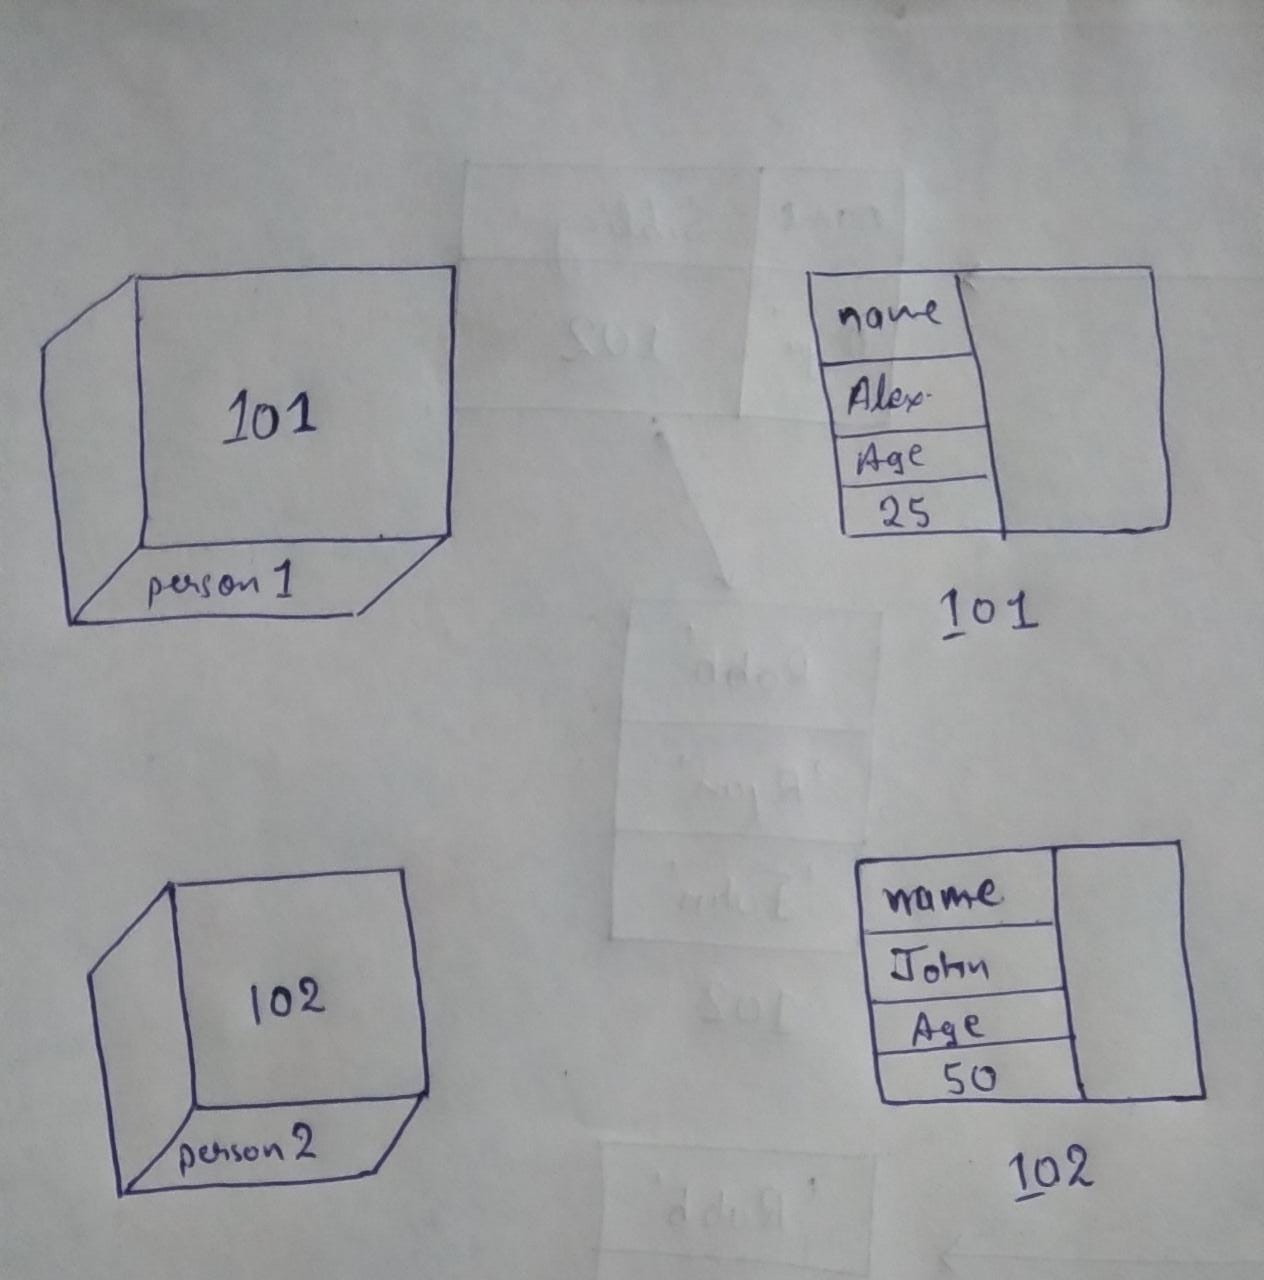 101
person 1
name
Alex.
Age
25
101
102
person 2
name
John
Age
50
102